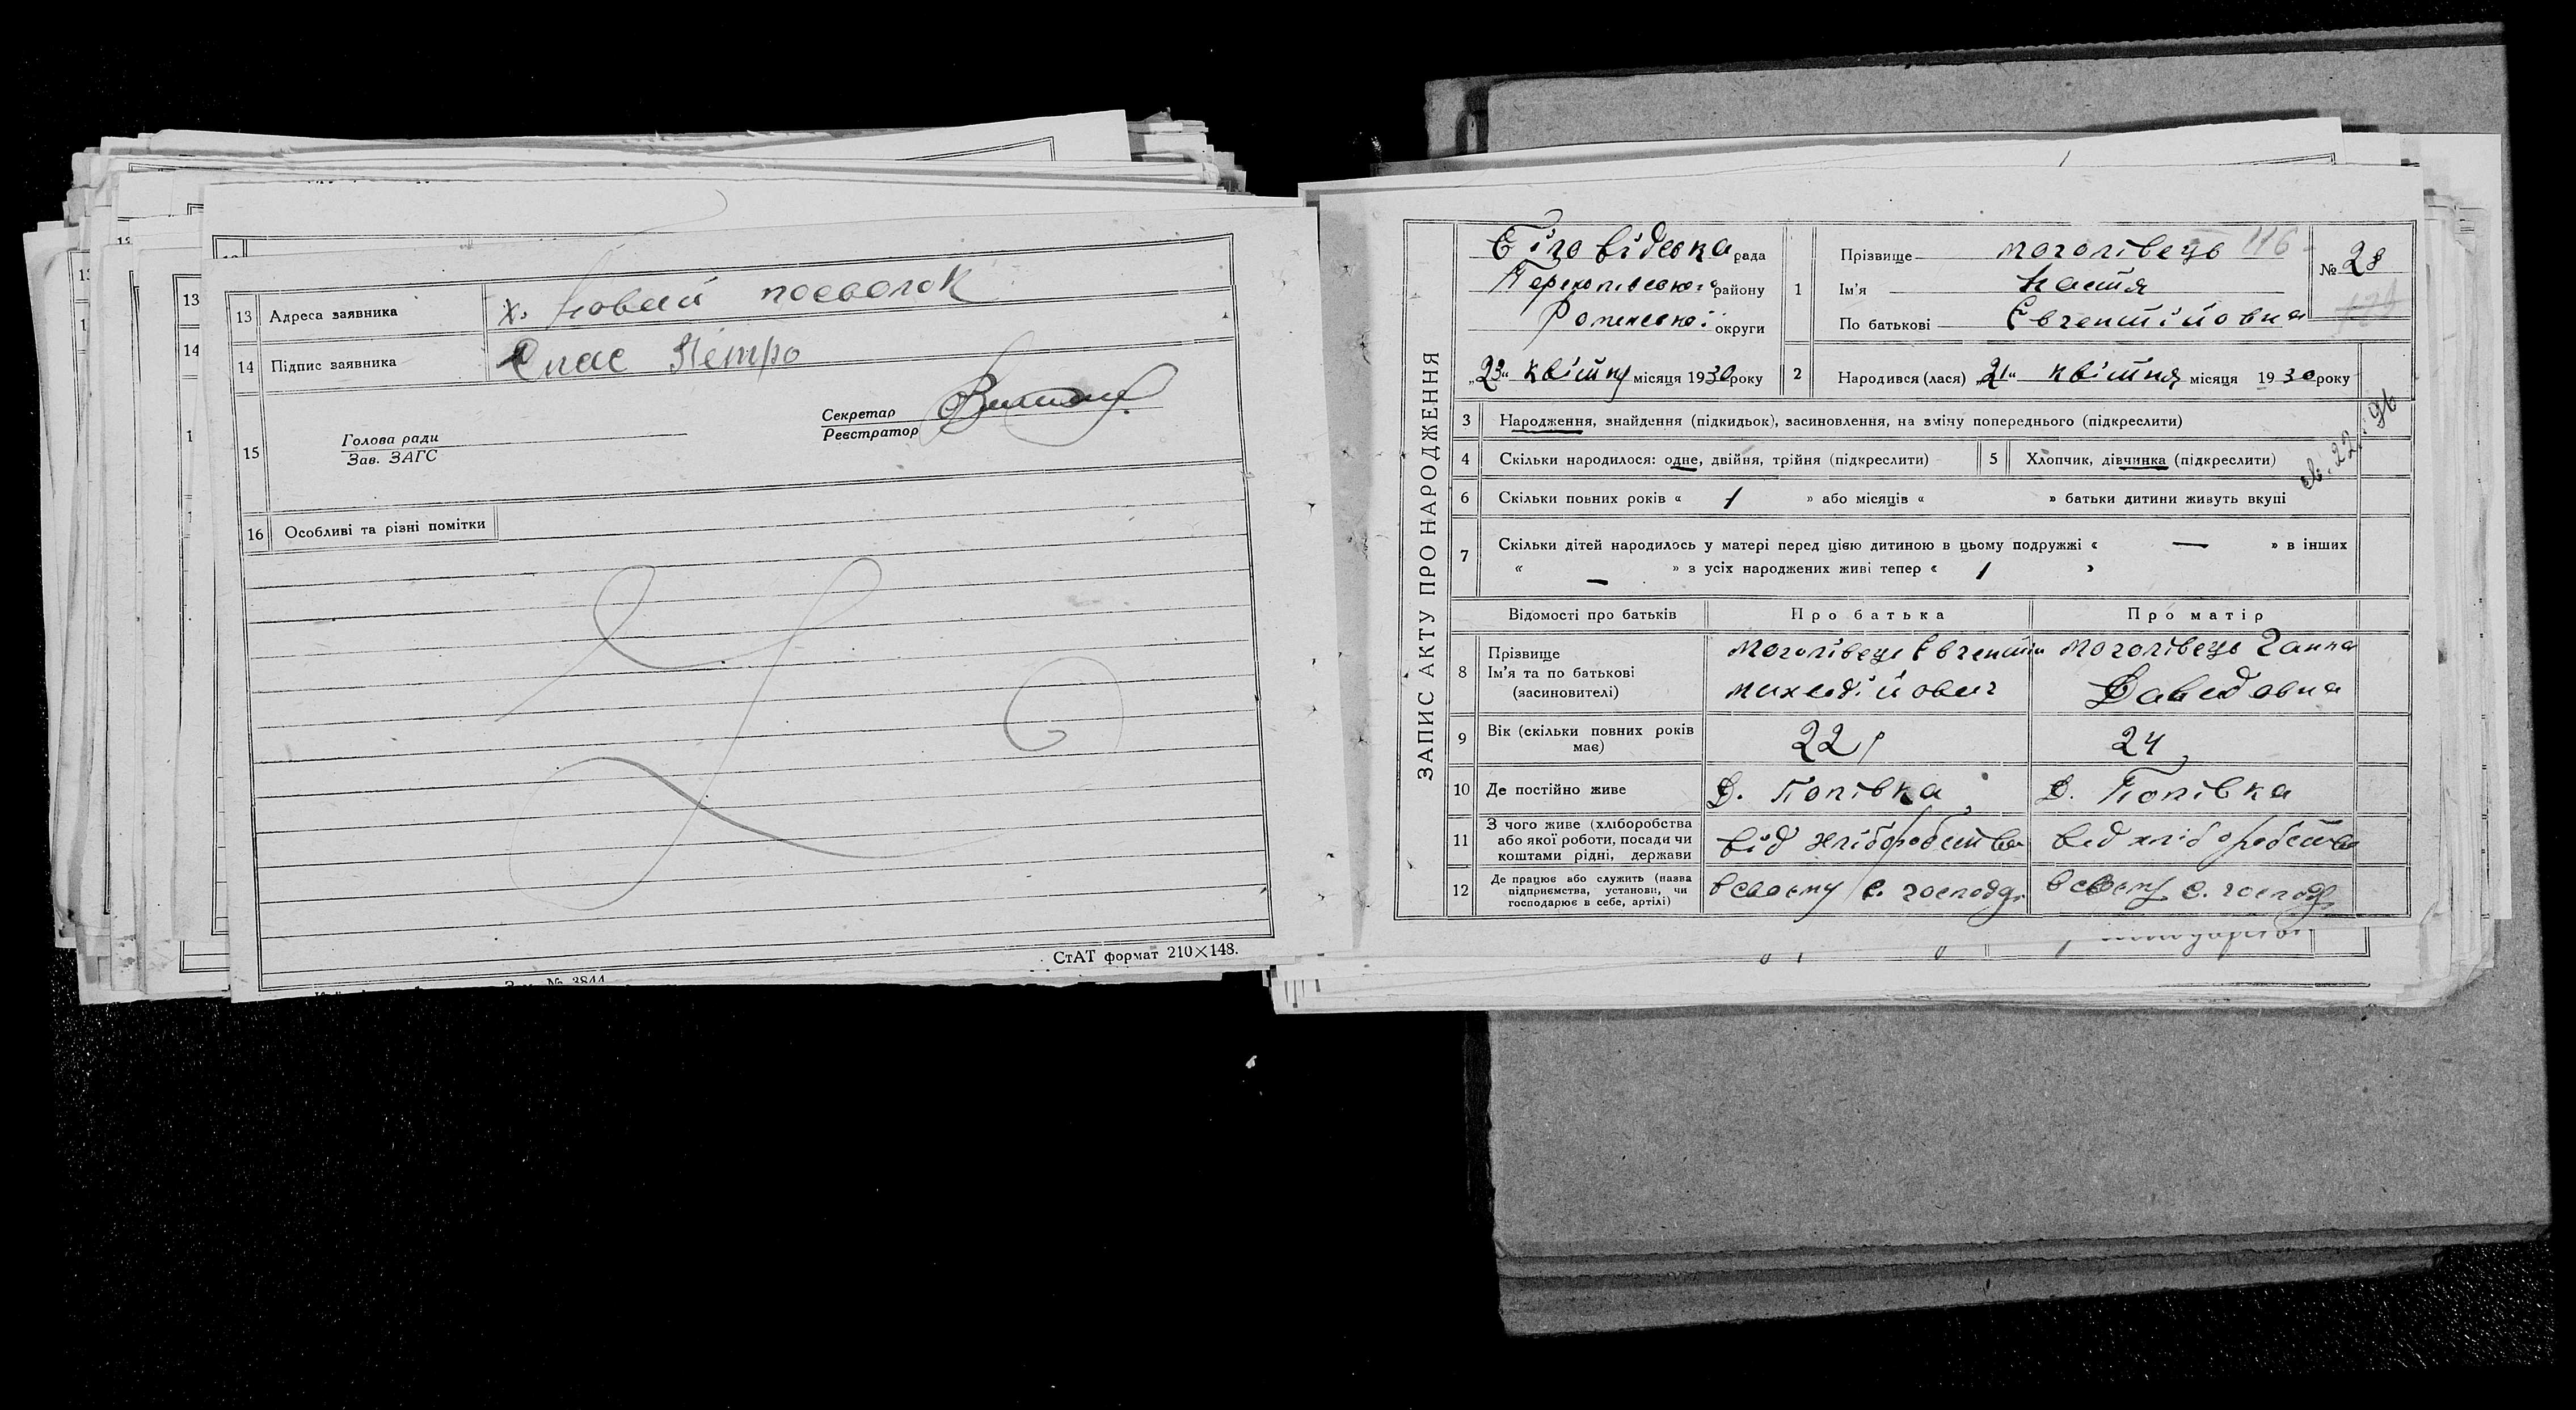 13 Адреса заявника х. Новий посьолок
14 Підпис заявника Спас Петро
15 Голова ради
Зав. ЗАГС
Секретар
Реєстратор
16 Особливі та різні помітки
СтАТ формат 210×148.
Зам. № 3844
ЗАПИС АКТУ ПРО НАРОДЖЕННЯ
Біловідська рада
Перекопівського району
Роменської округи
„23“ квітня місяця 1930 року
1 Прізвище моголівець 116
Ім'я Настя
По батькові Євгентійовна
№ 28
2 Народився (лася) „21“ квітня місяця 1930 року
3 Народження, знайдення (підкидьок), засиновлення, на зміну попереднього (підкреслити)
4 Скільки народилося: одне, двійня, трійня (підкреслити)
5 Хлопчик, дівчинка (підкреслити)
6 Скільки повних років « 1 » або місяців « » батьки дитини живуть вкупі
7 Скільки дітей народилось у матері перед цією дитиною в цьому подружжі « — » в інших
« — » з усіх народжених живі тепер « 1 »
Відомості про батьків Про батька Про матір
8 Прізвище
Ім'я та по батькові
(засиновителі)
моголівець Євгентій
михедійович
моголівець Ганна
Даведовна
9 Вік (скільки повних років
має)
22
24
10 Де постійно живе Д. Попівка Д. Попівка
11 З чого живе (хліборобства
або якої роботи, посади чи
коштами рідні, держави
від хліборобства від хліборобства
12 Де працює або служить (назва
підприємства, установи, чи
господарює в себе, артілі)
в своєму с. господ. в своєму с. господ.